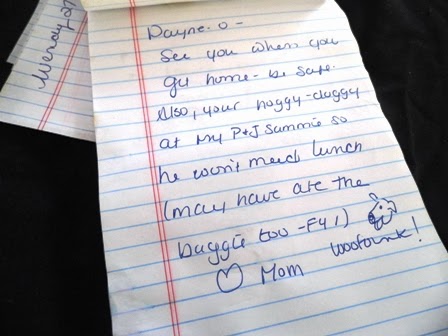 Dayne-o-
See you when you
get home - be safe.
Also, your huggy-duggy
at my P+J Sammie so
he won't need lunch
(may have ate the
baggie too - FYI)
woofoink!
♡ Mom